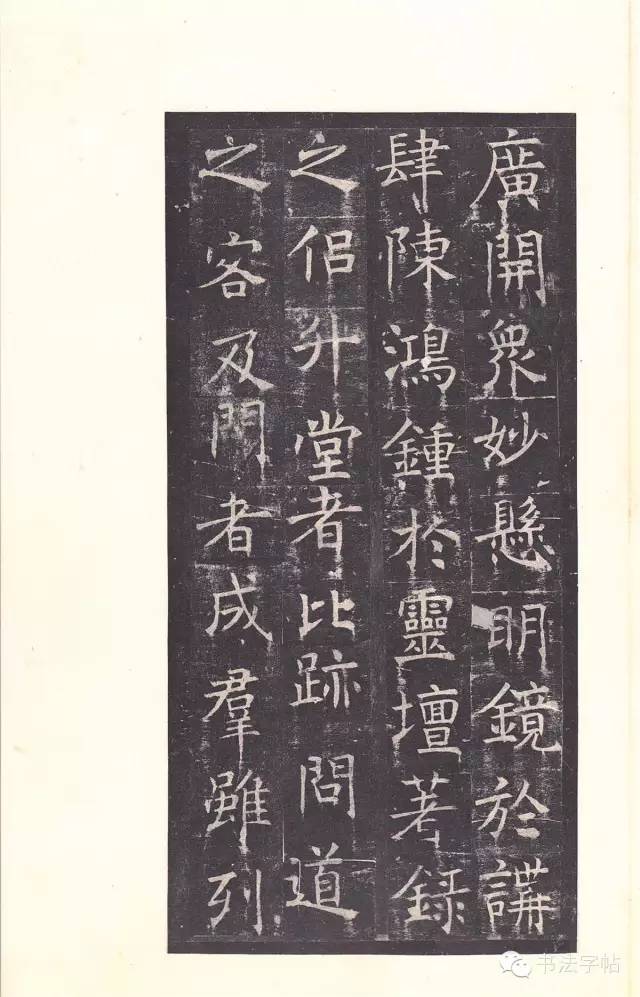 廣開衆妙懸明鏡於講
肆陳鴻鍾於靈壇著録
之侣升堂者比跡問道
之客及門者成羣雖列
书法字帖